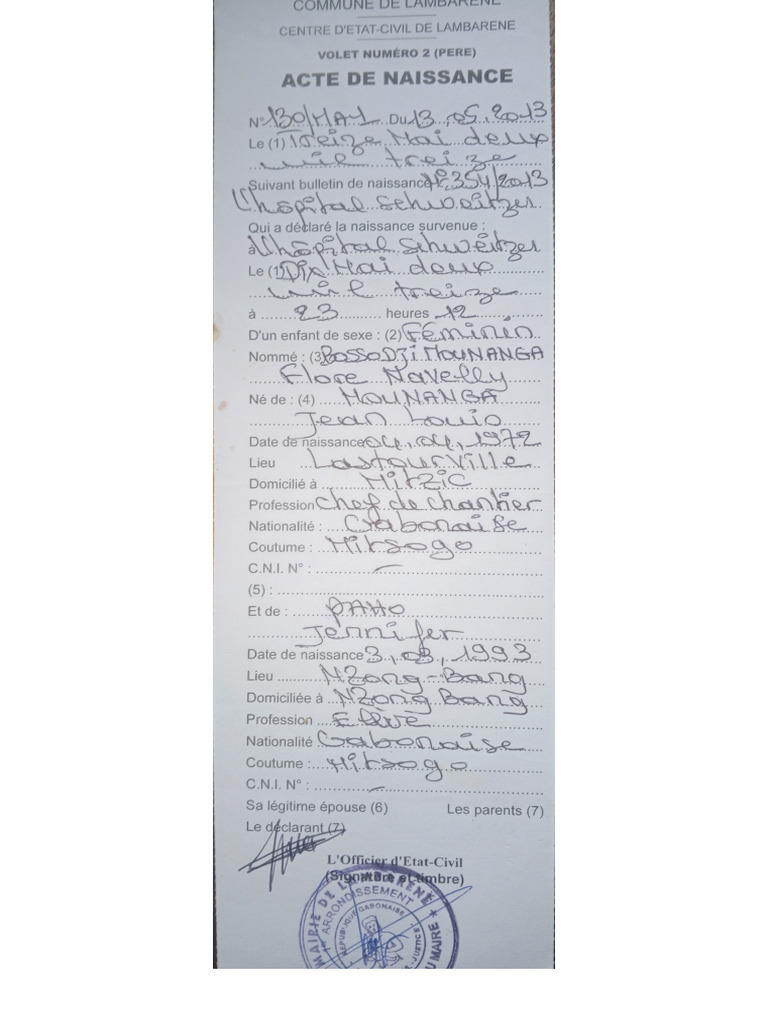 COMMUNE DE LAMBARENE
CENTRE D'ETAT-CIVIL DE LAMBARENE
VOLET NUMÉRO 2 (PERE)
ACTE DE NAISSANCE
N° 130/MA1 Du 13.05.2013
Le (1) Treize Mai deux
mil treize
Suivant bulletin de naissance N°354/2013
L'hôpital Schweitzer
Qui a déclaré la naissance survenue :
à L'hôpital Schweitzer
Le (1) Dix Mai deux
mil treize
à 23 heures 12
D'un enfant de sexe : (2) Féminin
Nommé : (3) BOSSODJI MOUNANGA
Flore Navelly
Né de : (4) MOUNANGA
Jean Louis
Date de naissance 04, 04, 1972
Lieu Lastourville
Domicilié à Mitzic
Profession Chef de chantier
Nationalité : Gabonaise
Coutume : Mitsogo
C.N.I. N° : –
(5) :
Et de : PAHO
Jennifer
Date de naissance 3, 03, 1993
Lieu NZong-Bang
Domiciliée à NZong Bang
Profession Elève
Nationalité Gabonaise
Coutume : Mitsogo
C.N.I. N° : –
Sa légitime épouse (6) Les parents (7)
Le déclarant (7)
L'Officier d'Etat-Civil
(Signature et timbre)
MAIRIE DE LAMBARENE
1er ARRONDISSEMENT
REPUBLIQUE GABONAISE
JUSTICE
DU MAIRE